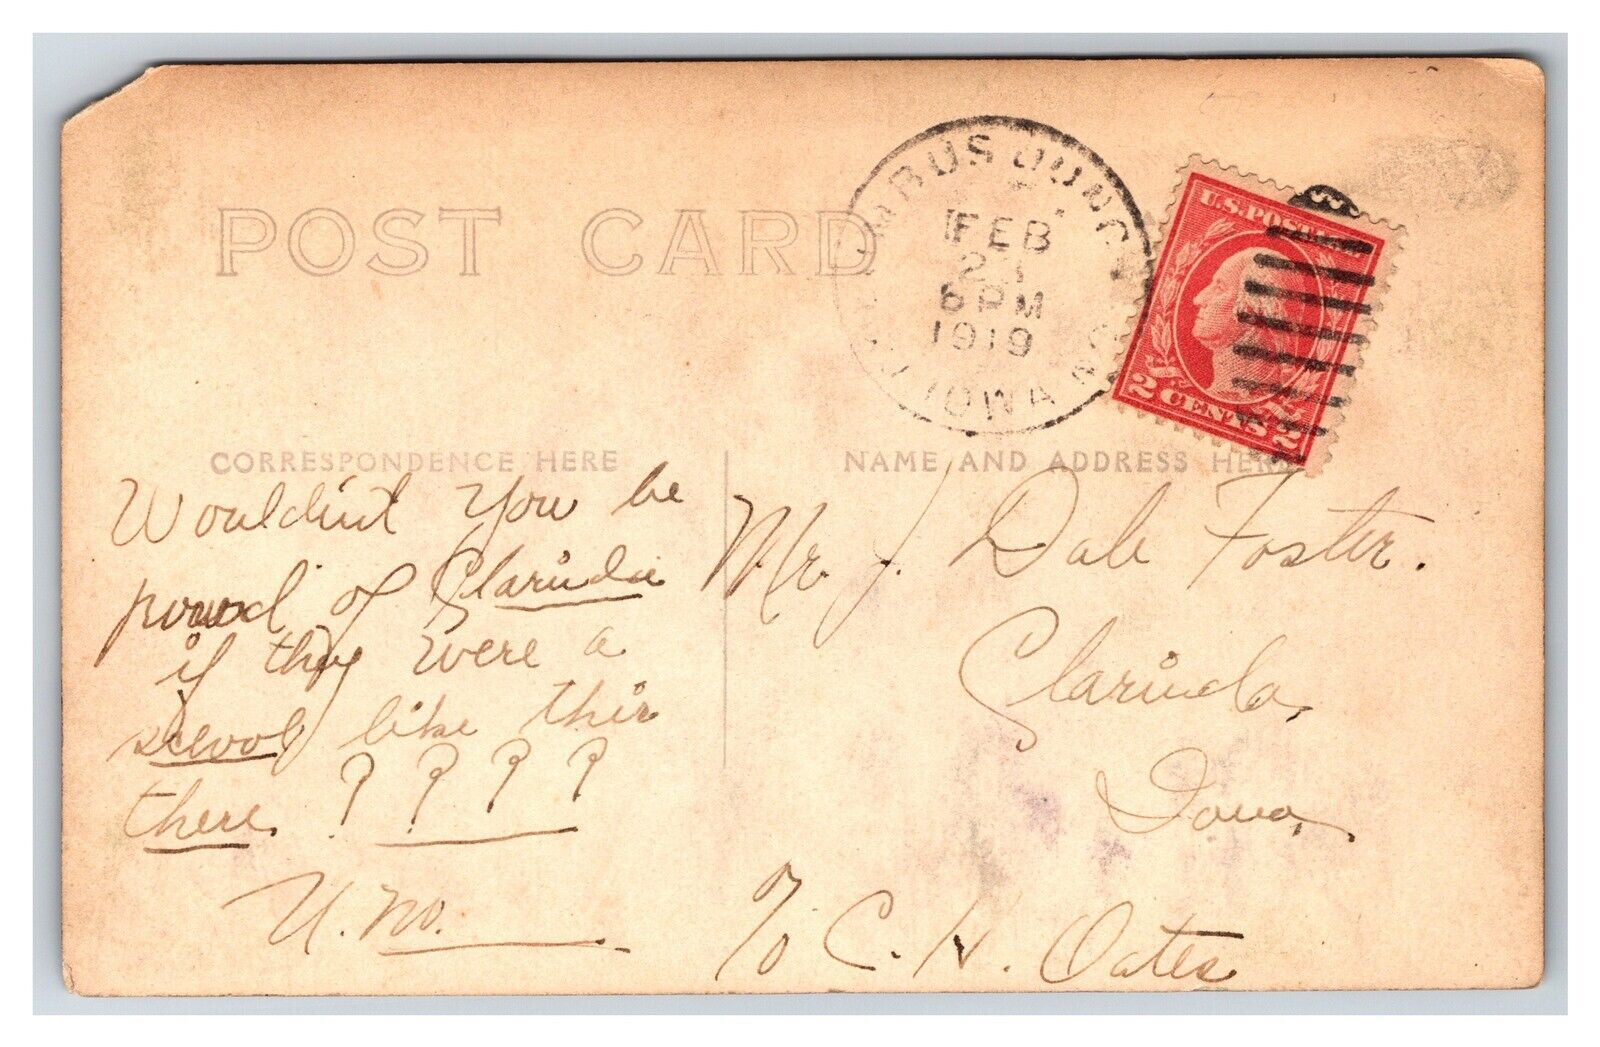 POST CARD
MBUS JUNC
FEB
6 PM
1919
IOWA
U.S. POST
2 CENTS 2
CORRESPONDENCE HERE
NAME AND ADDRESS HERE
Wouldint you be
proud of Clarinda
if they were a
school like this
there. ? ? ? ?
U. no.
Mr. J. Dale Foster.
Clarinda,
Iowa,
% C. H. Oates